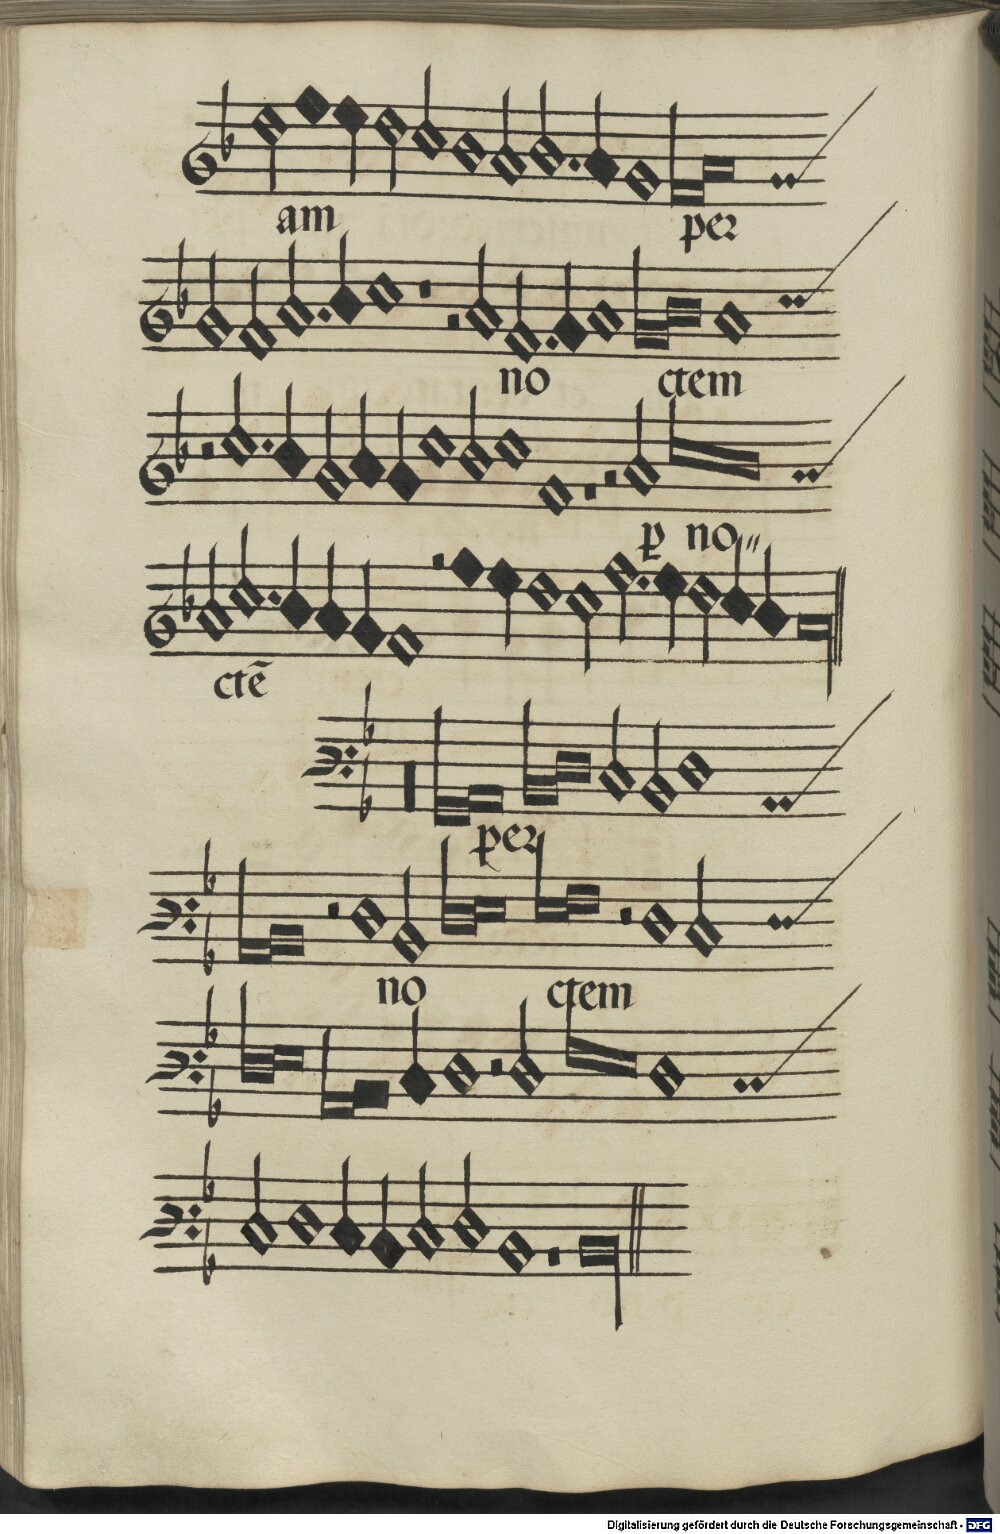 am per
no ctem
ꝑ no
ctē
per
no ctem
Digitalisierung gefördert durch die Deutsche Forschungsgemeinschaft - DFG